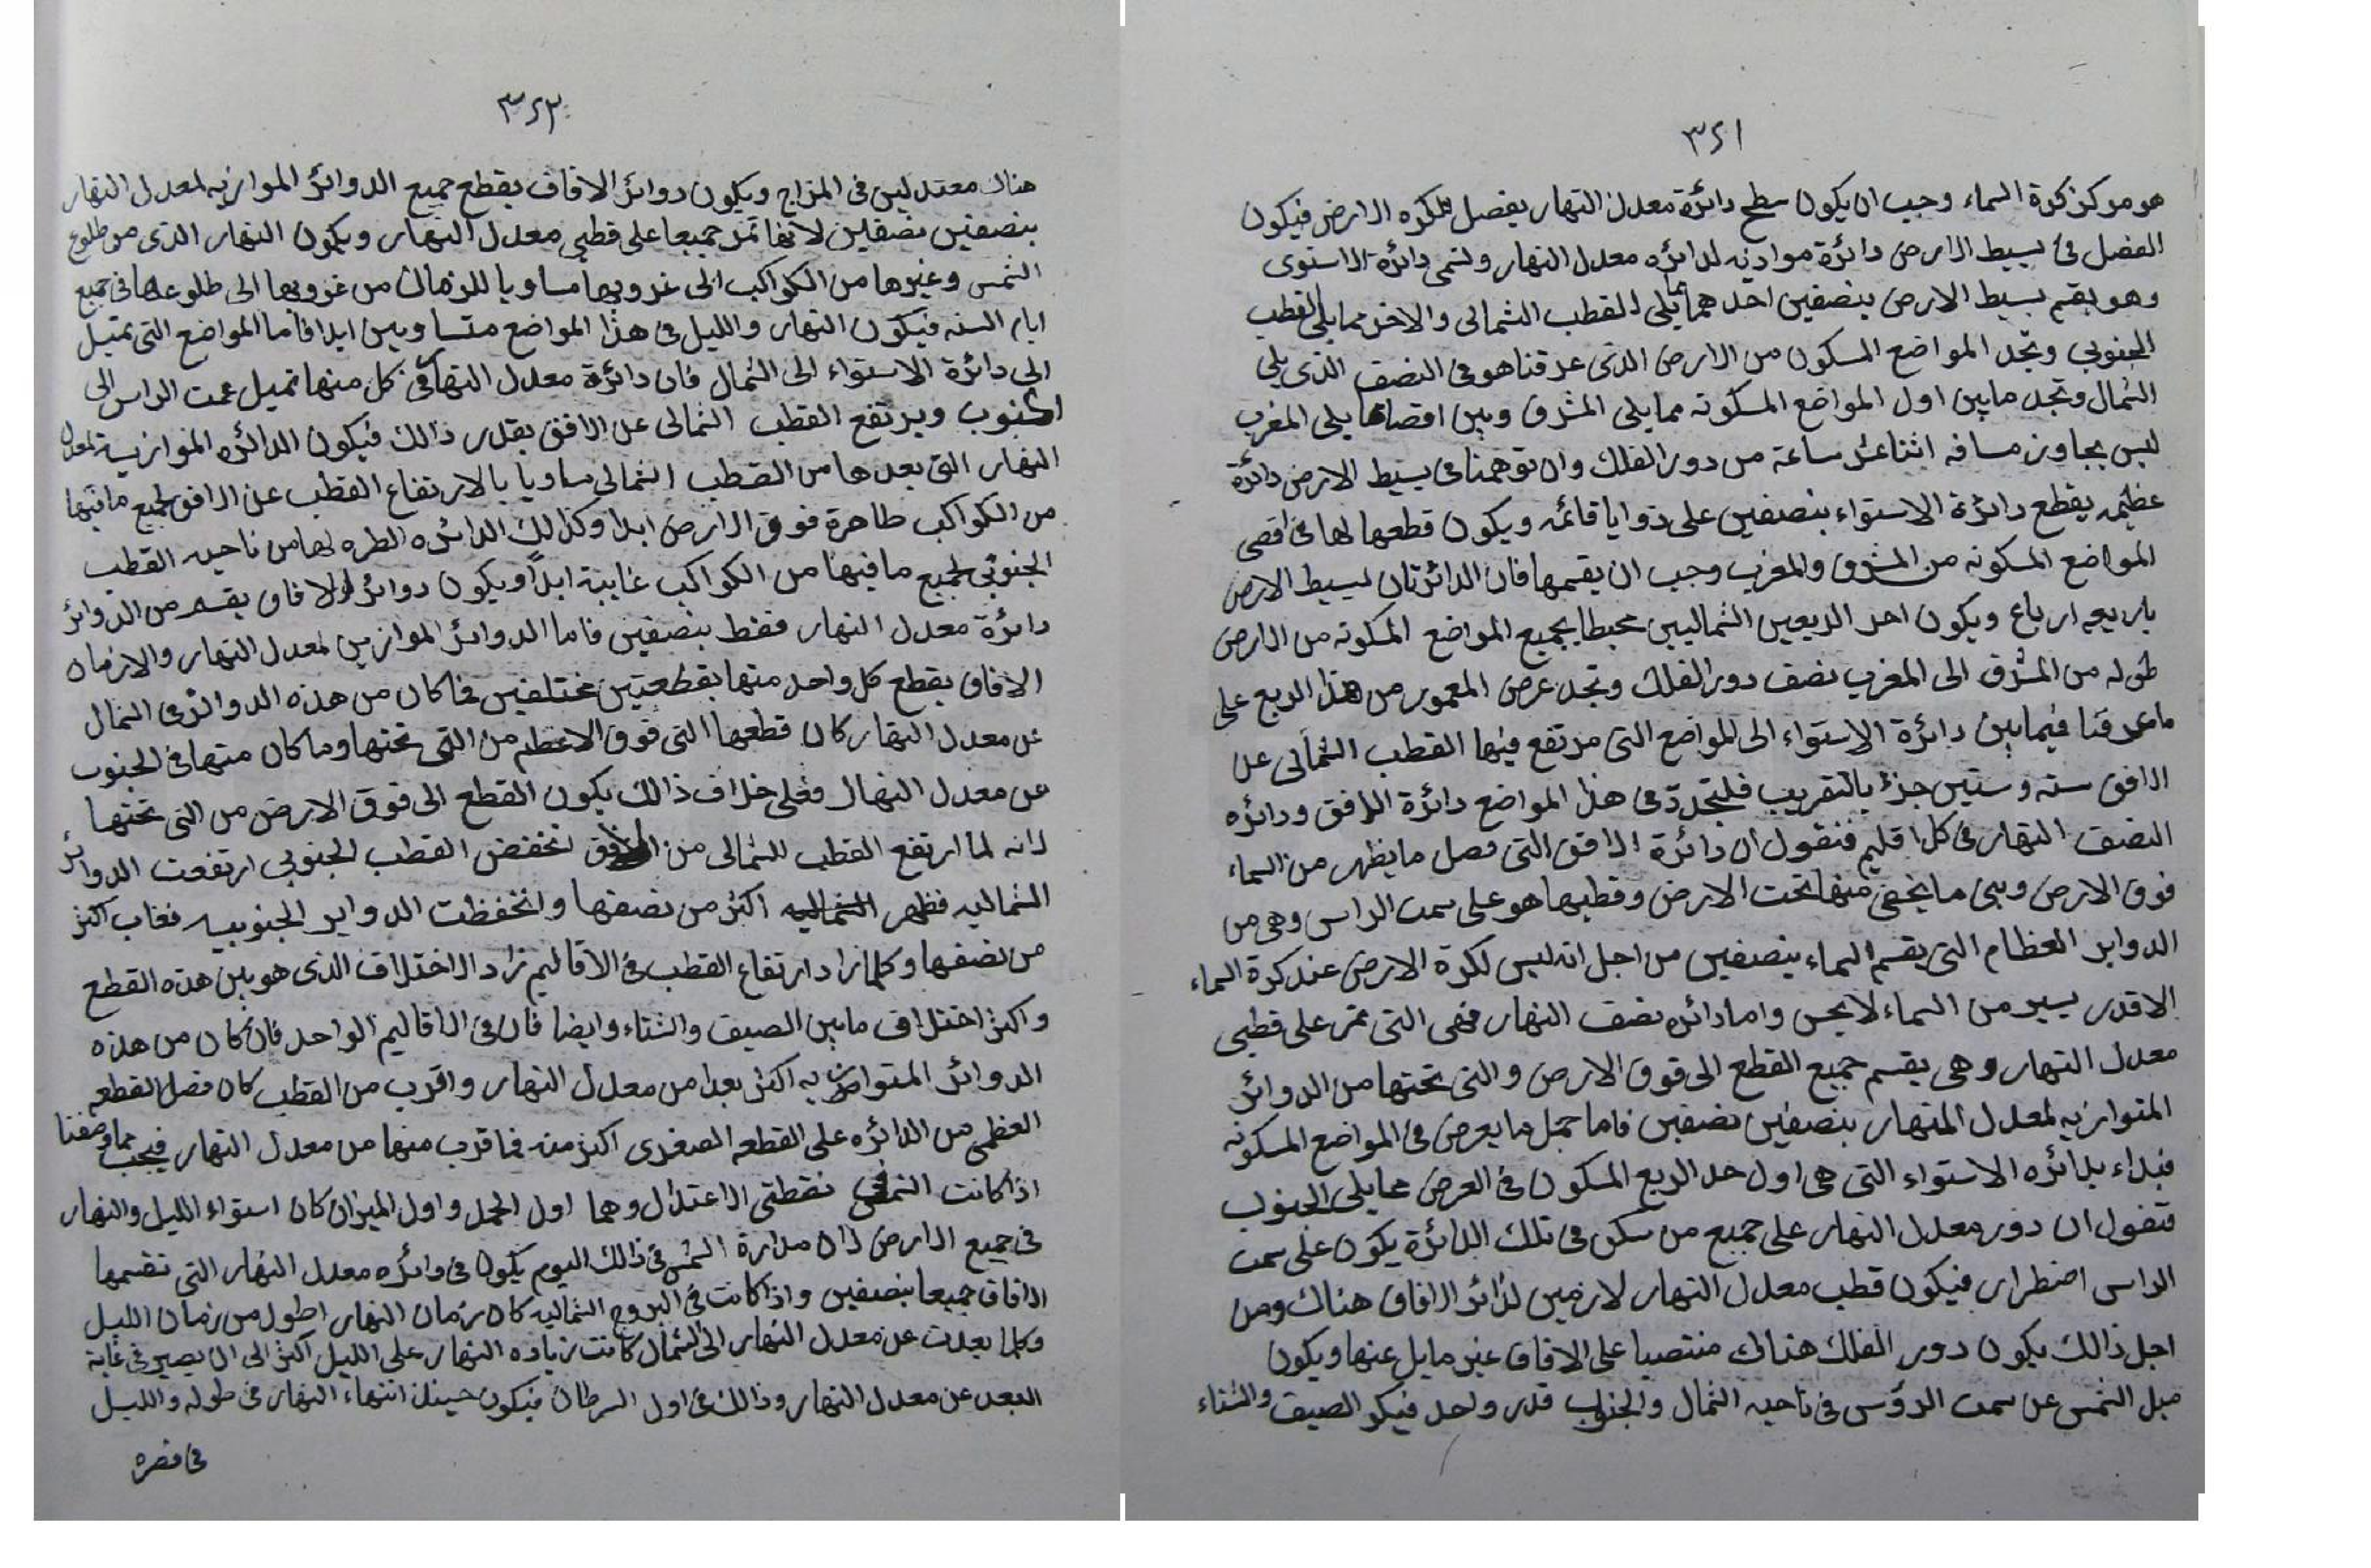 ٣٢١
هو مركز كرة السماء وجب ان يكون سطح دائرة معدل النهار يفصل للكره الارض فيكون
الفضل فى بسيط الارض دائرة موازيه لدائره معدل النهار ولتمى دائرة الاستوى
وهو يقسم بسيط الارض بنصفين احدهما مما يلى القطب الشمالى والاخر مما يلى القطب
الجنوبي ونجد المواضع المسكون من الارض الذى عرفنا هو فى النصف الذى يلي
الشمال ونجد مابين اول المواضع المسكونه مما يلى المشرق وبين اقصاها يلى المغرب
ليس يجاوز مسافه اثنا عشر ساعة من دور الفلك وان توهمنا فى بسيط الارض دائرة
عظيمه يقطع دائرة الاستواء بنصفين على زوايا قائمه ويكون قطعها لها فى اقصى
المواضع المسكونه من المشرق والمغرب وجب ان يقسمها فان الدائرتان لبسيط الارض
باربعه ارباع ويكون احد الربعين الشماليين محيطا بجميع المواضع المسكونه من الارض
طوله من المشرق الى المغرب نصف دور الفلك ونجد عرض المعمور من هذا الربع على
ماعرفنا فيما بين دائرة الاستواء الى المواضع التى مرتفع فيها القطب الشمالى عن
الافق سته وستين جزء بالتقريب فلنجدد فى هذا المواضع دائرة الافق ودائره
النصف النهار فى كل اقليم فنقول ان دائرة الافق التى فصل مايظهر من السماء
فوق الارض وبين مايخفى منها تحت الارض وقطبها هو على سمت الراس وهى من
الدواير العظام التى يقسم السماء بنصفين من اجل انه ليس لكرة الارض عند كرة السماء
الاقدر يسير من السماء لايحس واما دائره نصف النهار فهى التى تمر على قطبى
معدل النهار وهى يقسم جميع القطع الى فوق الارض والتى تحتها من الدوائر
المتوازيه لمعدل النهار بنصفين نصفين فاما جمل مايعرض فى المواضع المسكونه
فبداء بدائره الاستواء التى هى اول حد الربع المسكون فى العرض مما يلى الجنوب
فنقول ان دور معدل النهار على جميع من سكن فى تلك الدائرة يكون على سمت
الراس اضطرار فيكون قطب معدل النهار لازمين لدائر الافاق هناك ومن
اجل ذالك يكون دور الفلك هناك منتصبا على الافاق غير مايل عنها ويكون
ميل الشمس عن سمت الرؤس فى ناحيه الشمال والجنوب قدر واحد فيكو الصيف والشتاء
٣٢٣
هناك معتدلين فى المزاج ويكون دوائر الافاف يقطع جميع الدوائر الموازيه لمعدل النهار
بنصفين نصفين لانها تمر جميعا على قطبي معدل النهار ويكون النهار الذى من طلوع
الشمس وغيرها من الكواكب الى غروبها مساويا للزمان من غروبها الى طلوعها فى جميع
ايام السنه فيكون النهار والليل فى هذا المواضع متساويين ابدا فاما المواضع التى تميل
الى دائرة الاستواء الى الشمال فان دائرة معدل النهار فى كل منها تميل عن سمت الراس الى
الجنوب ويرتفع القطب الشمالى عن الافق بقدر ذالك فيكون الدائره الموازيه لمعدل
النهار التى بعدها من القطب الشمالى مساويا بالارتفاع القطب عن الافق لجميع مافيها
من الكواكب ظاهرة فوق الارض ابدا وكذالك الدائره لها من ناحيه القطب
الجنوبي لجميع مافيها من الكواكب غايبة ابداً ويكون دوائر الافاق يقسم من الدوائر
دائرة معدل النهار فقط بنصفين فاما الدوائر الموازين لمعدل النهار والازمان
الافاق يقطع كل واحد منها بقطعتين مختلفين فما كان من هذه الدوائر فى الشمال
عن معدل النهار كان قطعها التى فوق الاعظم من التى تحتها وما كان منها فى الجنوب
عن معدل النهار فعلى خلاف ذالك يكون القطع الى فوق الارض من التى تحتها
لانه لما ارتفع القطب الشمالى من الافق انخفض القطب الجنوبي ارتفعت الدوائر
الشماليه فظهر الشماليه اكثر من نصفها وانخفظت الدواير الجنوبيه فغاب اكثر
من نصفها وكلما زاد ارتفاع القطب فى الاقاليم زاد الاختلاف الذى هو بين هذه القطع
واكثر اختلاف مابين الصيف والشتاء وايضا فان فى الاقاليم الواحد فان كان من هذه
الدوائر المتوازيه اكثر بعدا من معدل النهار واقرب من القطب كان فضل القطعه
العظمى من الدائره على القطعه الصغرى اكثر منه فما قرب منها من معدل النهار فيجب مما وصفنا
اذا كانت الشمس فى نقطتى الاعتدال وهما اول الحمل واول الميزان كان استواء الليل والنهار
فى جميع الارض لان مدارة الشمس فى ذالك اليوم يكون فى دائره معدل النهار التى تقسمها
الافاق جميعا بنصفين واذا كانت فى البروج الشماليه كان زمان النهار اطول من زمان الليل
وكلما بعدت عن معدل النهار الى الشمال كانت زياده النهار على الليل اكثر الى ان يصير فى غاية
البعد عن معدل النهار وذالك فى اول السرطان فيكون حينئذ انتهاء النهار فى طوله والليل
فى قصره